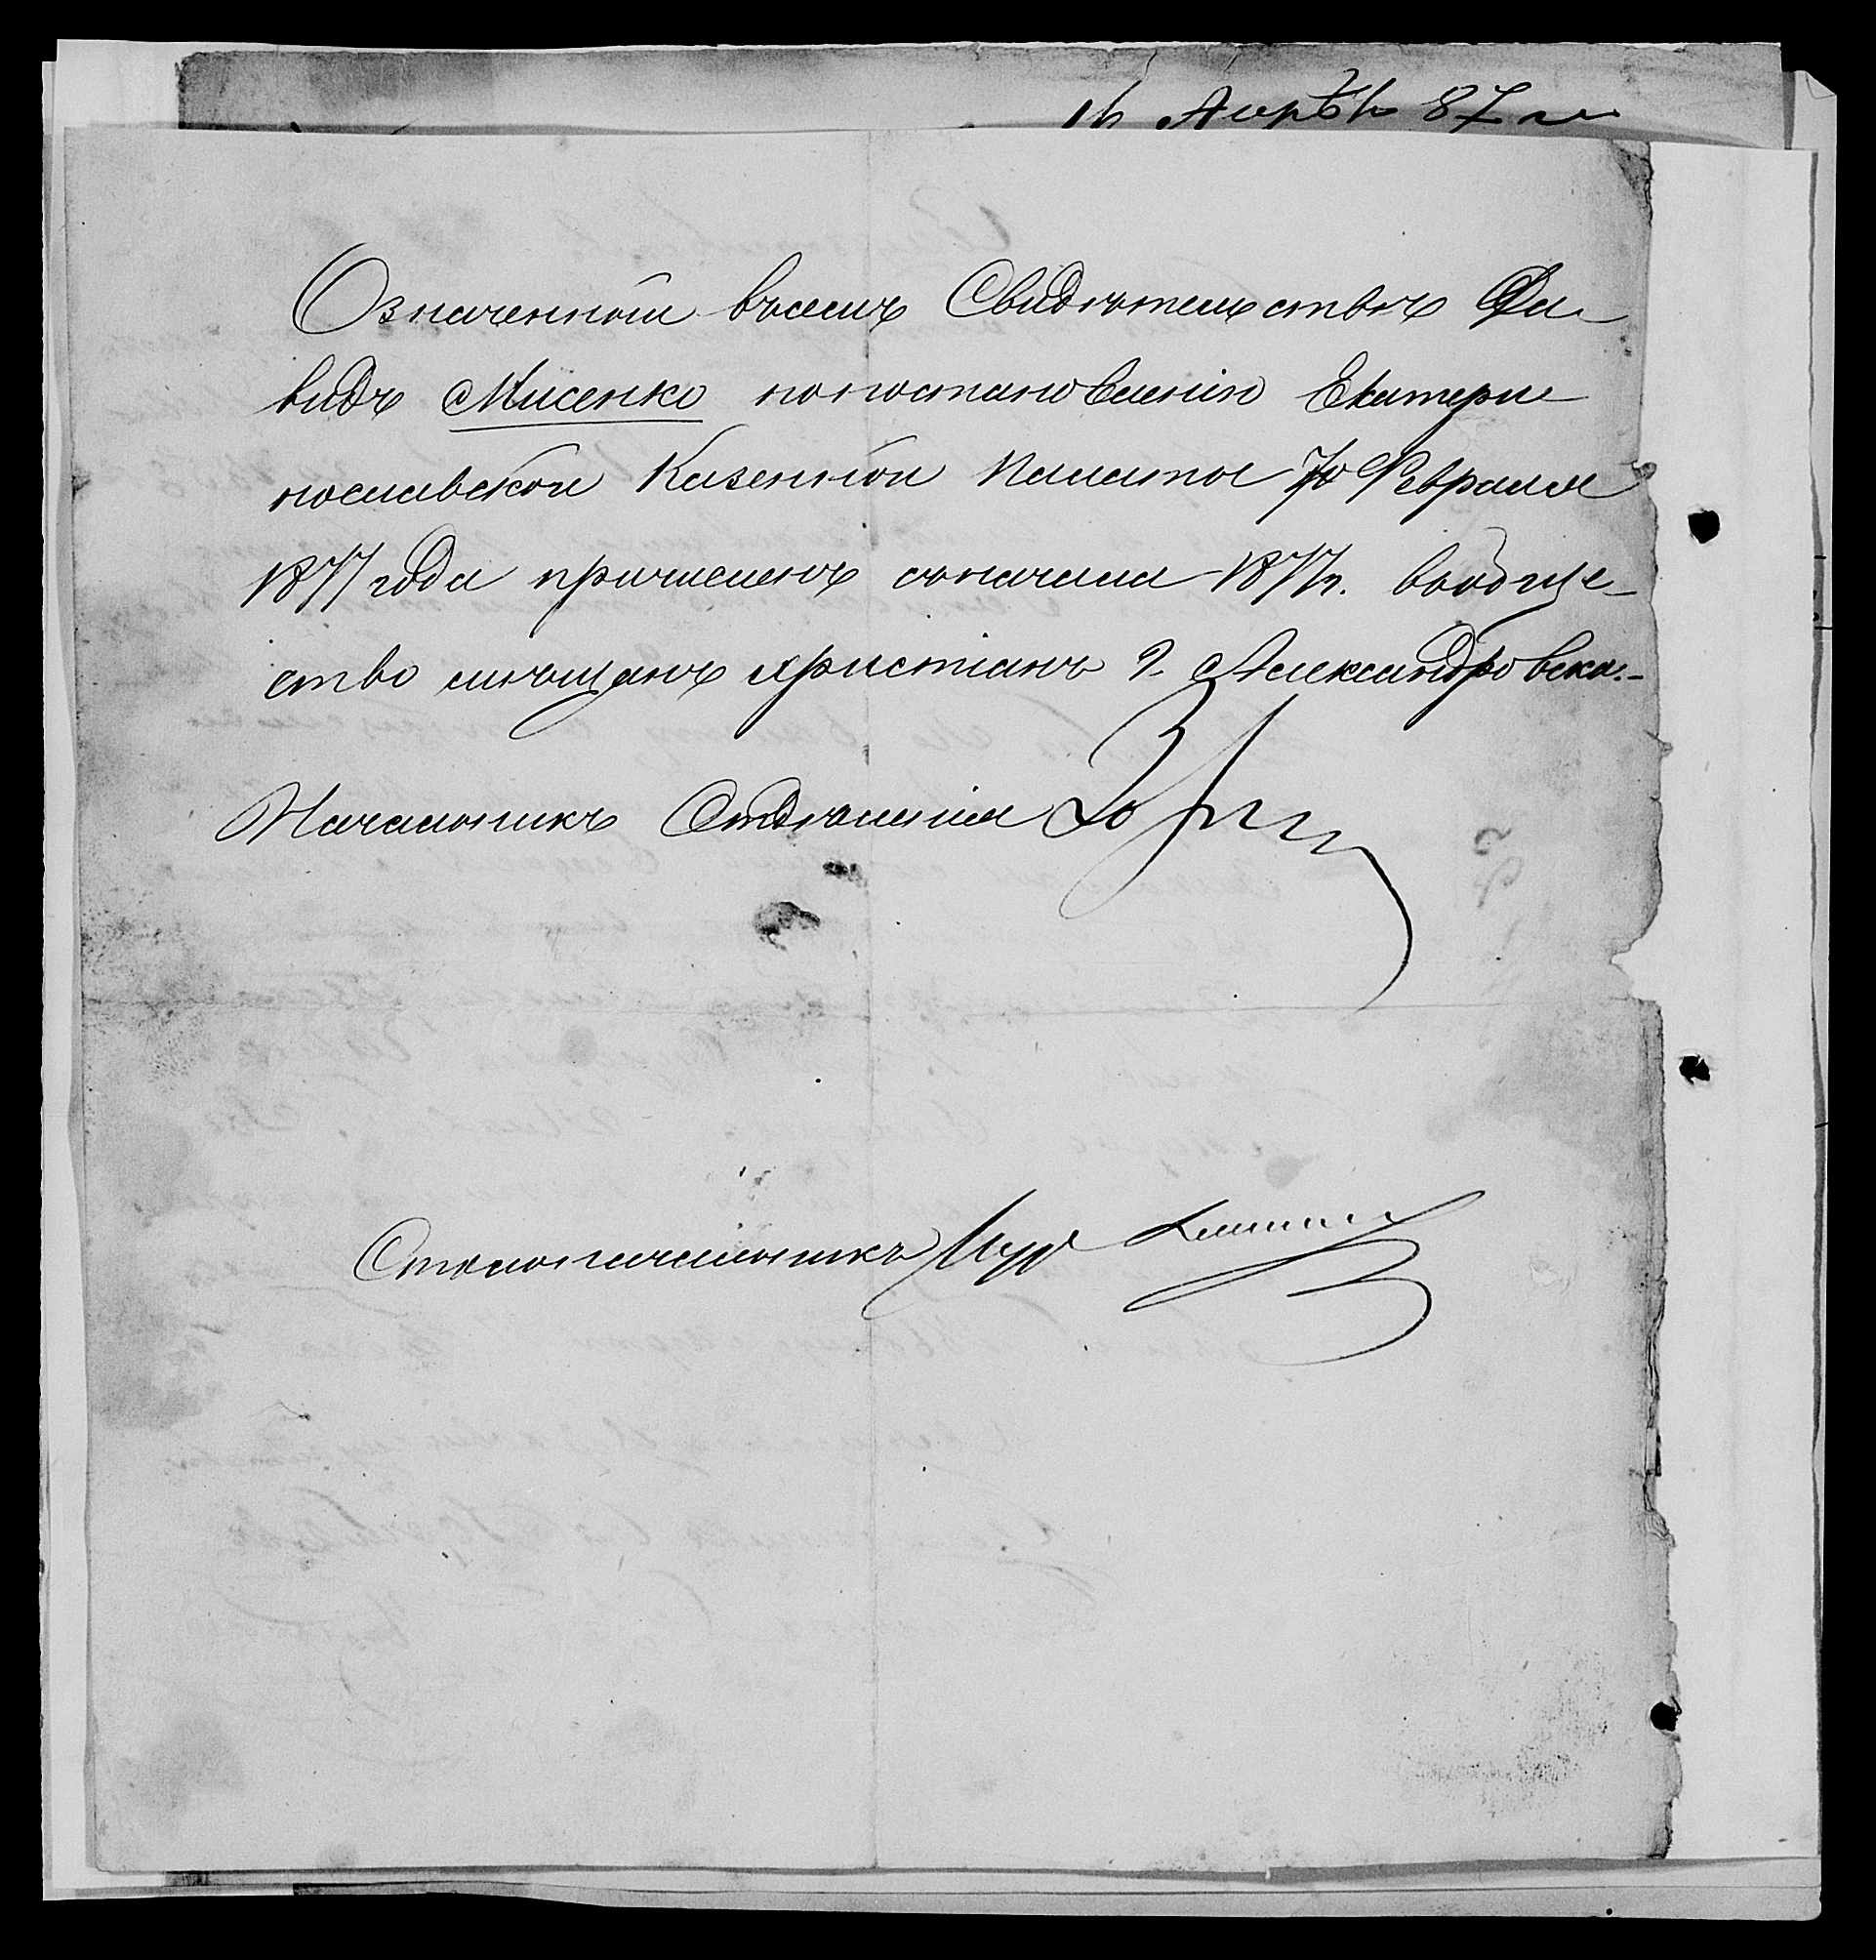 16 Апрѣл 87 г
Означенный въ семъ Свидѣтельствѣ Да-
видъ Мисенко по постановленію Екатери-
нославской Казенной Палаты Февраля
1877 года причисленъ съ начала 1877 г. въ обще-
ство мѣщанъ христіанъ г. Александровска.-
Начальникъ Отдѣленія
Столоначальникъ